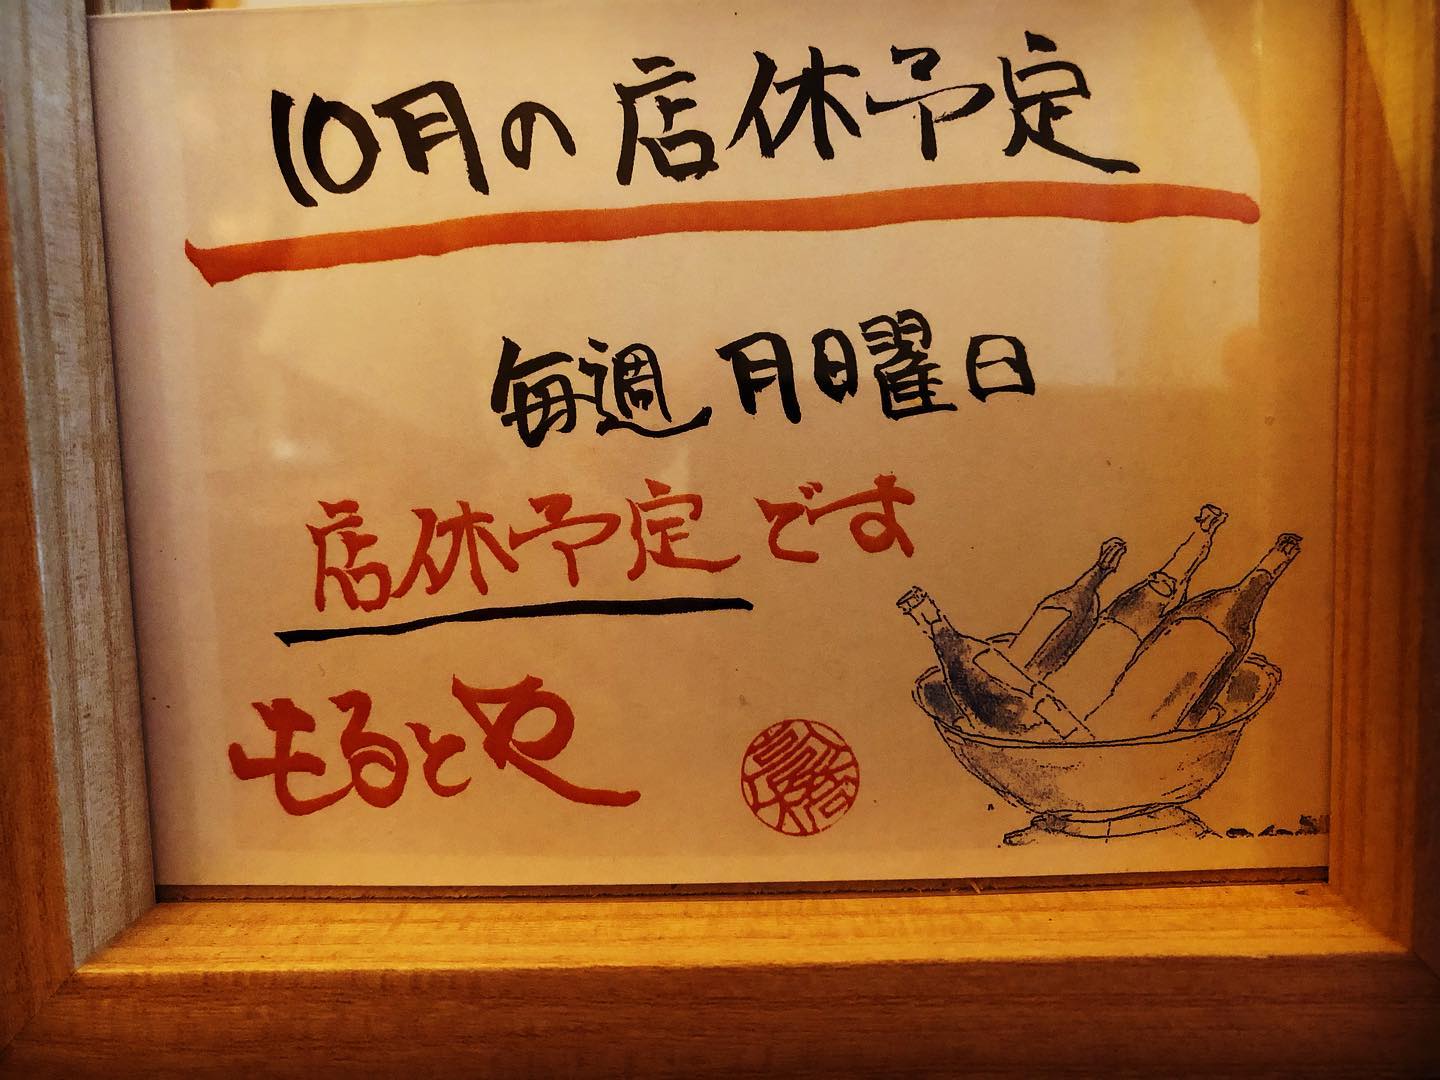 10月の店休予定
毎週 月日曜日
店休予定です
もるとや